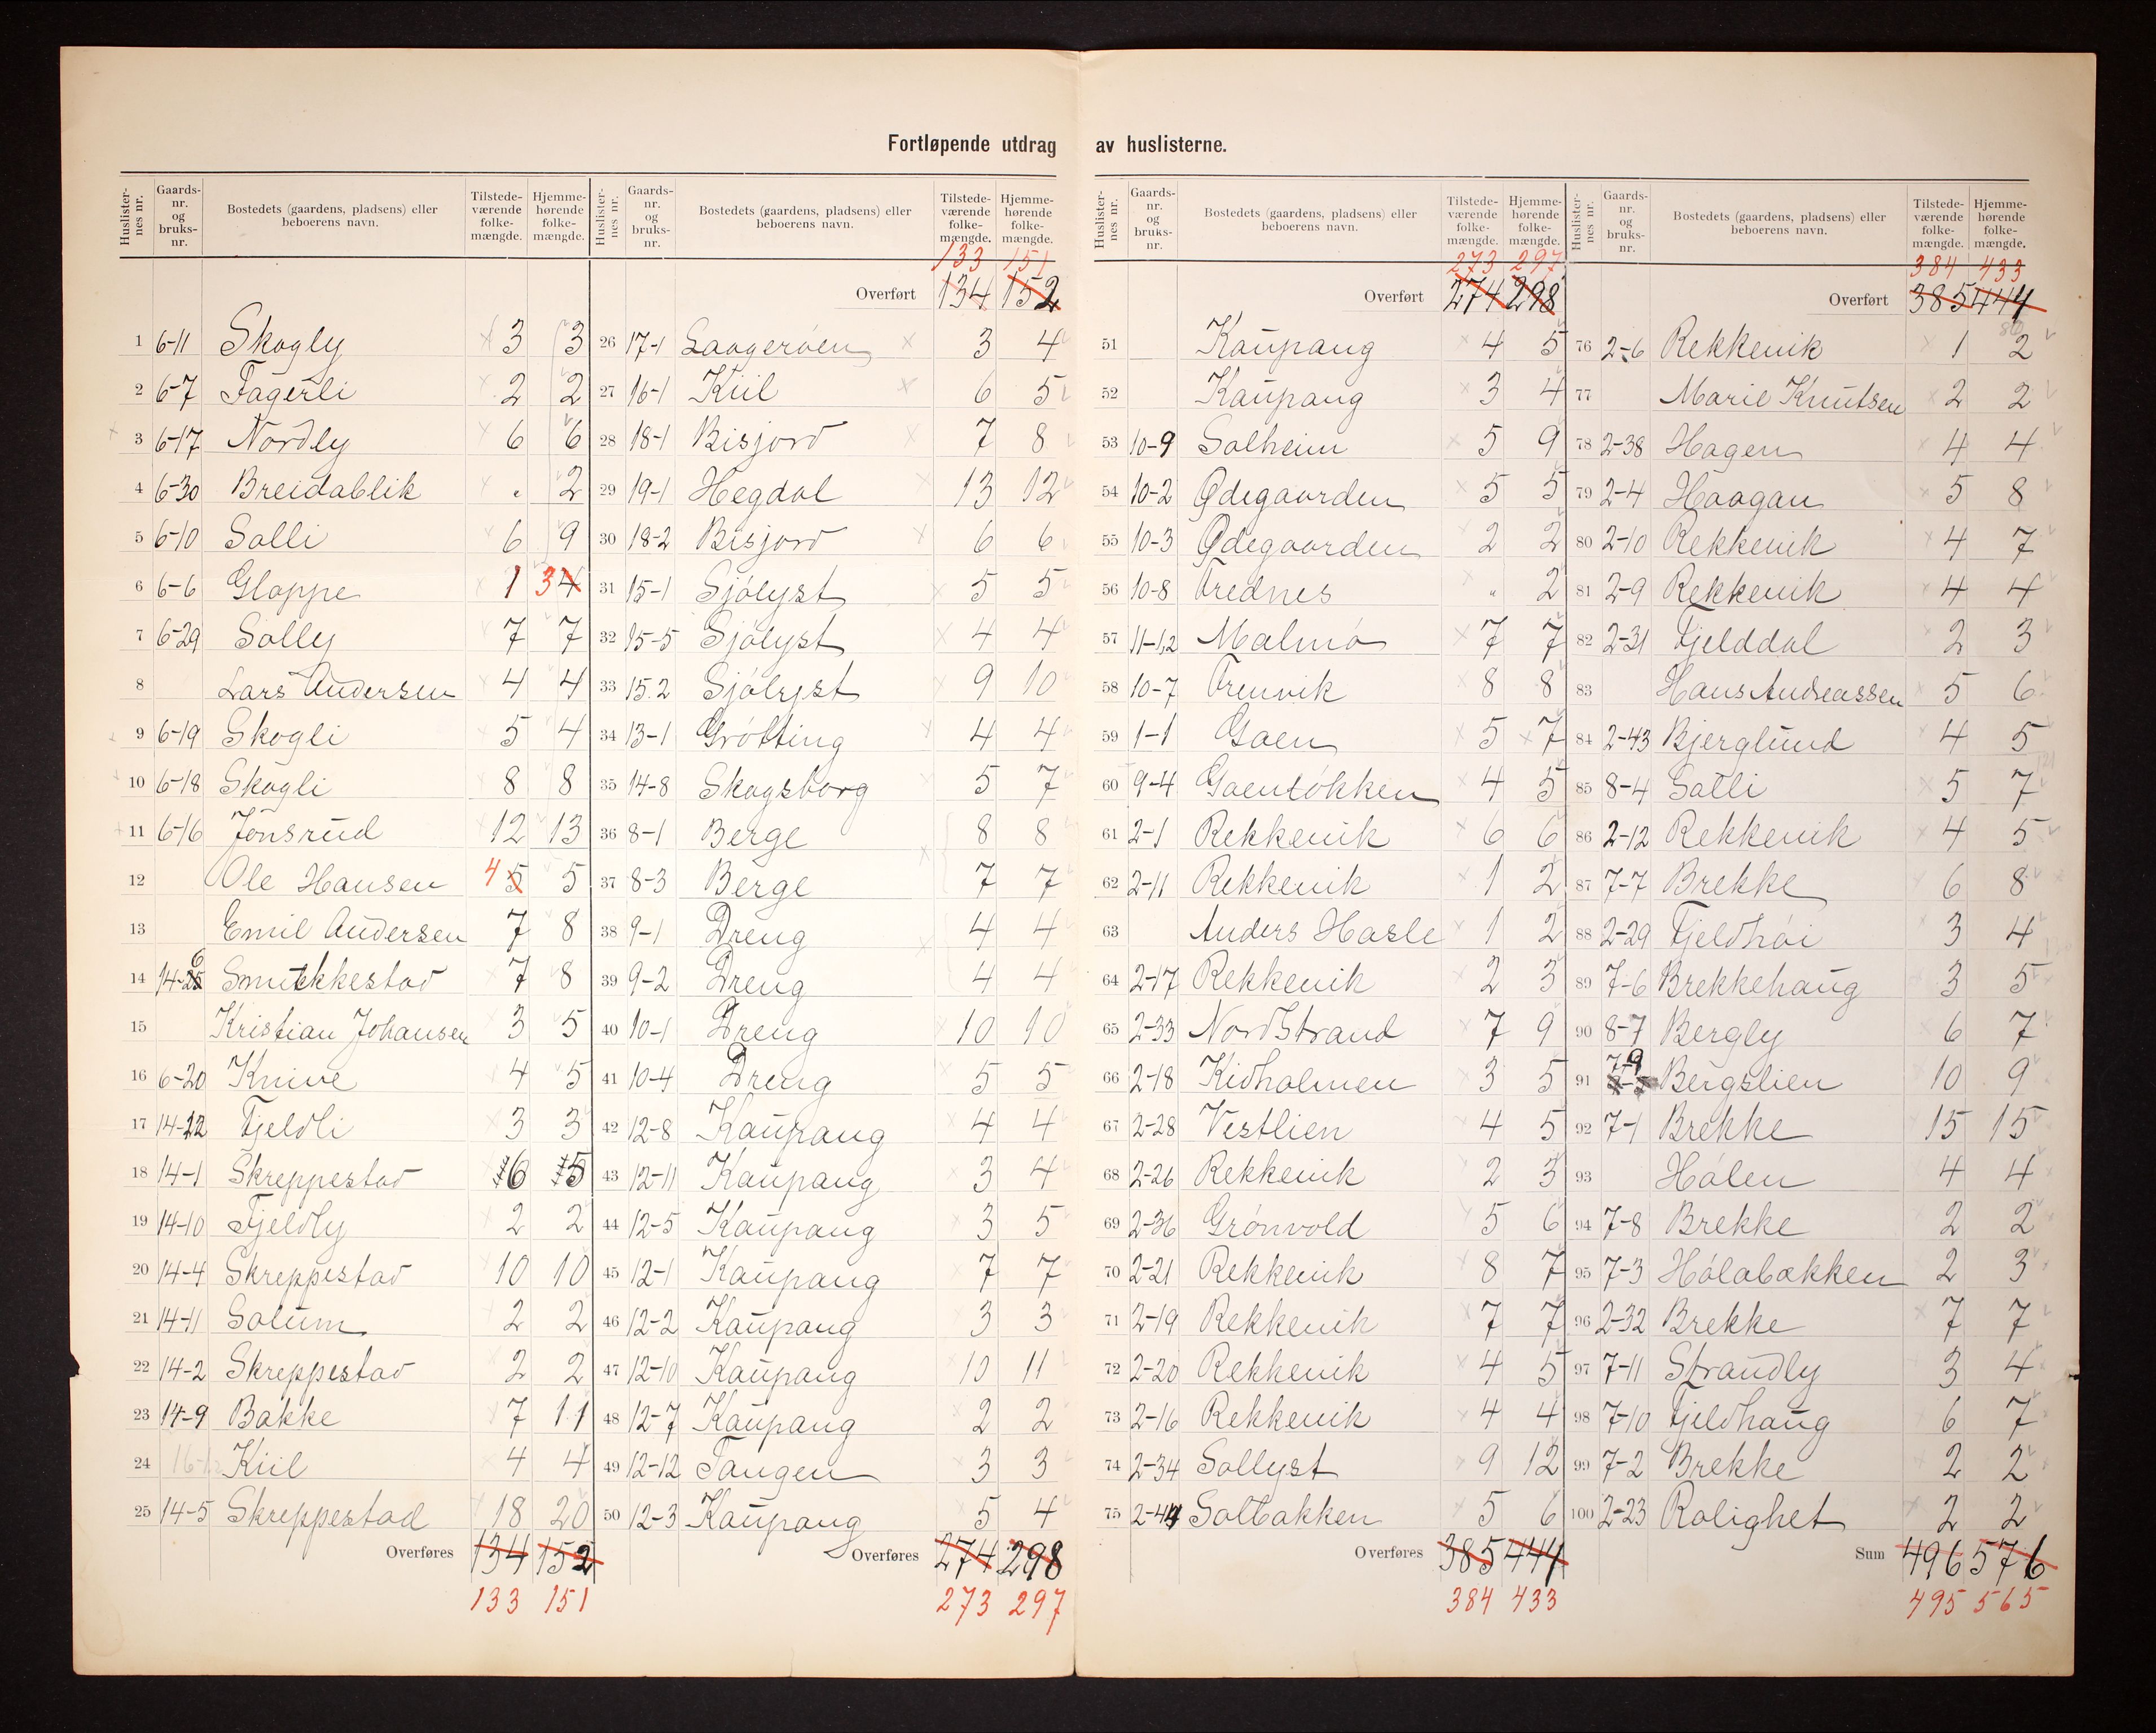 Fortløpende utdrag av huslisterne.
Huslisternes nr. Gaards-nr. og bruks-nr. Bostedets (gaardens, pladsens) eller beboerens navn. Tilstede-værende folke-mængde. Hjemme-hørende folke-mængde.
1 6-11 Skogly 3 3
2 6-7 Fagerli 2 2
3 6-17 Nordly 6 6
4 6-30 Breidablik . 2
5 6-10 Solli 6 9
6 6-6 Gloppe 1 3 4
7 6-29 Solly 7 7
8 Lars Andersen 4 4
9 6-19 Skogli 5 4
10 6-18 Skogli 8 8
11 6-16 Jonsrud 12 13
12 Ole Hansen 4 5 5
13 Emil Andersen 7 8
14 14- Smukkestad 7 8
15 Kristian Johansen 3 5
16 6-20 Knive 4 5
17 14-22 Fjeldli 3 3
18 14-1 Skreppestad 6 5
19 14-10 Fjeldly 2 2
20 14-4 Skreppestad 10 10
21 14-11 Solum 2 2
22 14-2 Skreppestad 2 2
23 14-9 Bakke 7 11
24 Kiil 4 4
25 14-5 Skreppestad 18 20
Overføres 134 152
133 151
Huslisternes nr. Gaards-nr. og bruks-nr. Bostedets (gaardens, pladsens) eller beboerens navn. Tilstede-værende folke-mængde. Hjemme-hørende folke-mængde.
133 151
Overført 134 152
26 17-1 Laagerøen 3 4
27 16-1 Kiil 6 5
28 18-1 Bisjord 7 8
29 19-1 Hegdal 13 12
30 18-2 Bisjord 6 6
31 15-1 Sjólyst 5 5
32 15-5 Sjólyst 4 4
33 15.2 Sjólyst 9 10
34 13-1 Grótting 4 4
35 14-8 Skogsborg 5 7
36 8-1 Berge 8 8
37 8-3 Berge 7 7
38 9-1 Dreng 4 4
39 9-2 Dreng 4 4
40 10-1 Dreng 10 10
41 10-4 Dreng 5 5
42 12-8 Kaupang 4 4
43 12-11 Kaupang 3 4
44 12-5 Kaupang 3 5
45 12-1 Kaupang 7 7
46 12-2 Kaupang 3 3
47 12-10 Kaupang 10 11
48 12-7 Kaupang 2 2
49 12-12 Tangen 3 3
50 12-3 Kaupang 5 4
Overføres 274 298
273 297
Huslisternes nr. Gaards-nr. og bruks-nr. Bostedets (gaardens, pladsens) eller beboerens navn. Tilstede-værende folke-mængde. Hjemme-hørende folke-mængde.
273 297
Overført 274 298
51 Kaupang 4 5
52 Kaupang 3 4
53 10-9 Solheim 5 9
54 10-2 Ødegaarden 5 5
55 10-3 Ødegaarden 2 2
56 10-8 Trednes " 2
57 11-1,2 Malmø 7 7
58 10-7 Trenvik 8 8
59 1-1 Goen 5 7
60 9-4 Goenlókken 4 5
61 2-1 Rekkevik 6 6
62 2-11 Rekkevik 1 2
63 Anders Hasle 1 2
64 2-17 Rekkevik 2 3
65 2-33 Nordstrand 7 9
66 2-18 Kidholmen 3 5
67 2-28 Vestlien 4 5
68 2-26 Rekkevik 2 3
69 2-36 Grónvold 5 6
70 2-21 Rekkevik 8 7
71 2-19 Rekkevik 7 7
72 2-20 Rekkevik 4 5
73 2-16 Rekkevik 4 4
74 2-34 Sollyst 9 12
75 2-44 Solbakken 5 6
Overføres 385 444
384 433
Huslisternes nr. Gaards-nr. og bruks-nr. Bostedets (gaardens, pladsens) eller beboerens navn. Tilstede-værende folke-mængde. Hjemme-hørende folke-mængde.
384 433
Overført 385 444
76 2-6 Rekkevik 1 2
77 Marie Knutsen 2 2
78 2-38 Hagen 4 4
79 2-4 Haagan 5 8
80 2-10 Rekkevik 4 7
81 2-9 Rekkevik 4 4
82 2-31 Fjelddal 2 3
83 Hans Andreassen 5 6
84 2-43 Bjerglund 4 5
85 8-4 Solli 5 7
86 2-12 Rekkevik 4 5
87 7-7 Brekke 6 8
88 2-29 Fjeldhói 3 4
89 7-6 Brekkehaug 3 5
90 8-7 Bergly 6 7
91 7-9 Bergslien 10 9
92 7-1 Brekke 15 15
93 Hólen 4 4
94 7-8 Brekke 2 2
95 7-3 Hólabakken 2 3
96 2-32 Brekke 7 7
97 7-11 Strandly 3 4
98 7-10 Fjeldhaug 6 7
99 7-2 Brekke 2 2
100 2-23 Rolighet 2 2
Sum 496 576
495 565